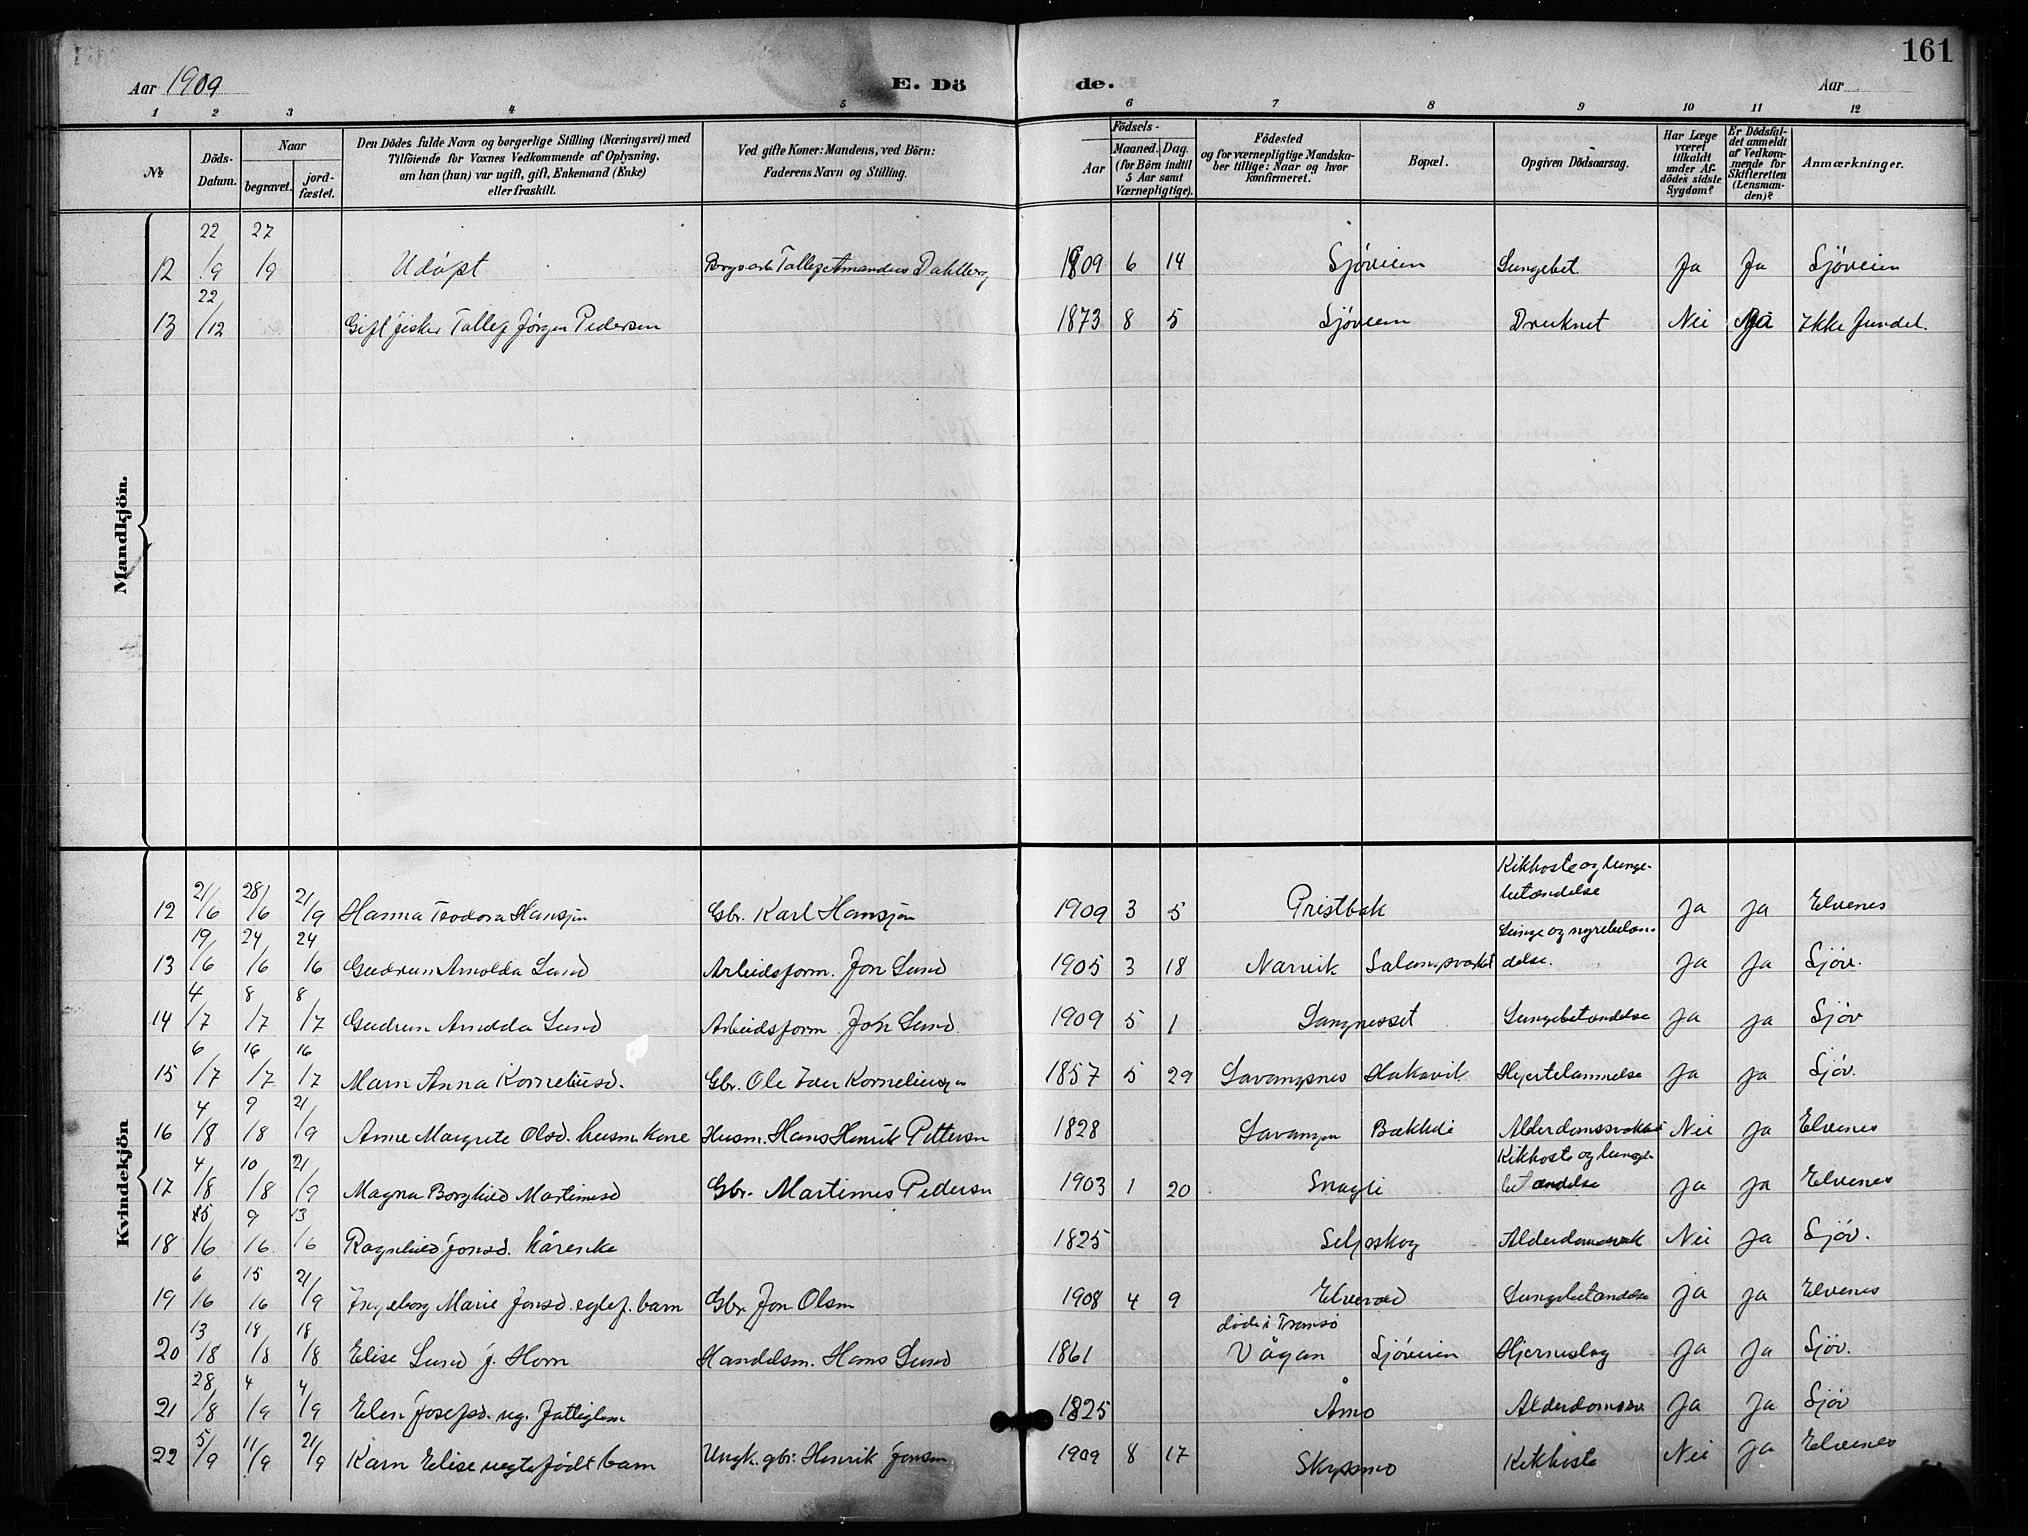 161
Aar 1909 E. Dö de. Aar
1 2 3 4 5 6 7 8 9 10 11 12
№ Döds-Datum. Naar begravet. jord-fæstet. Den Dödes fulde Navn og borgerlige Stilling (Næringsvei) med Tilföiende for Voxnes Vedkommende af Oplysning, om han (hun) var ugift, gift, Enkemand (Enke) eller fraskilt. Ved gifte Koner: Mandens, ved Börn: Faderens Navn og Stilling. Födsels- Aar Maaned. Dag. (for Börn indtil 5 Aar samt Værnepligtige). Födested og for værnepligtige Mandska-ber tillige: Naar og hvor konfirmeret. Bopæl. Opgiven Dödsaarsag. Har Læge været tilkaldt under Af-dödes sidste Sygdom? Er Dödsfal-det anmeldt af Vedkom-mende for Skifteretten (Lensman-den)? Anmærkninger.
Mandkjön.
12 22/9 27/9 Udöpt Tollef Amandus Dahlberg 1909 6 14 Sjöveien Lungebet. Ja Ja Sjöveien
13 22/12 Gift fisker Tollef Jörgen Pedersen 1873 8 5 Sjöveien Druknet Nei Ikke fundet.
Kvindekjön
12 21/6 28/6 21/9 Hanna Teodora Hansen Gbr. Karl Hansen 1909 3 5 Pristbak Kikhoste og lunge-betændelse Ja Ja Elvenes
13 19/6 24/6 24/6 Gudrun Arnolda Lund Arbeidsform. Jon Lund 1905 3 18 Narvik Salangsværket Lunge og nyrebetæn-delse. Ja Ja Sjöv.
14 4/7 8/7 8/7 Gudrun Arnolda Lund Arbeidsform. Jon Lund 1909 5 1 Langnesset Lungebetændelse Ja Ja Sjöv
15 6/7 16/7 16/7 Marn Anna Korneliusd. Gbr. Ole Korneliussen 1857 5 29 Lavangsnes Hakavik Hjertelammelse Ja Ja Sjöv.
16 4/8 9/8 21/9 Anne Margrete Olsd. husm. kone Husm. Hans Henrik Pettersn 1828 Lavangen Bakkeli Nei Ja Elvenes
17 4/8 10/8 21/9 Magna Borghild Martinusd Gbr. Martinus Pedersn 1903 1 20 Snagli Kikhoste og lunge-betændelse Ja Ja Elvenes
18 15/6 9/6 13/6 Ragnhild Jonsd. kårenke 1825 Selpskog Alderdomssvak Nei Ja Sjöv.
19 6/6 15/6 21/9 Ingeborg Marie Jonsd. egtef. barn Gbr. Jon Olsen 1908 4 9 Elvevold Lungebetændelse Ja Ja Elvenes
20 13/8 18/8 18/8 Elise Lund f. Horn Handelsm. Hans Lund 1861 död i Tromsö Vågan Sjöveien Hjerneslag Ja Ja Sjöv.
21 28/8 4/9 4/9 Elen Josefsd. ug. fattiglem 1825 Åmo Alderdomssv. Ja Ja Sjöv
22 5/9 11/9 21/9 Karn Elise uegtefödt barn Ungk. gbr. Henrik Jonsen 1909 8 17 Skysmo Kikhoste Nei Ja Elvenes